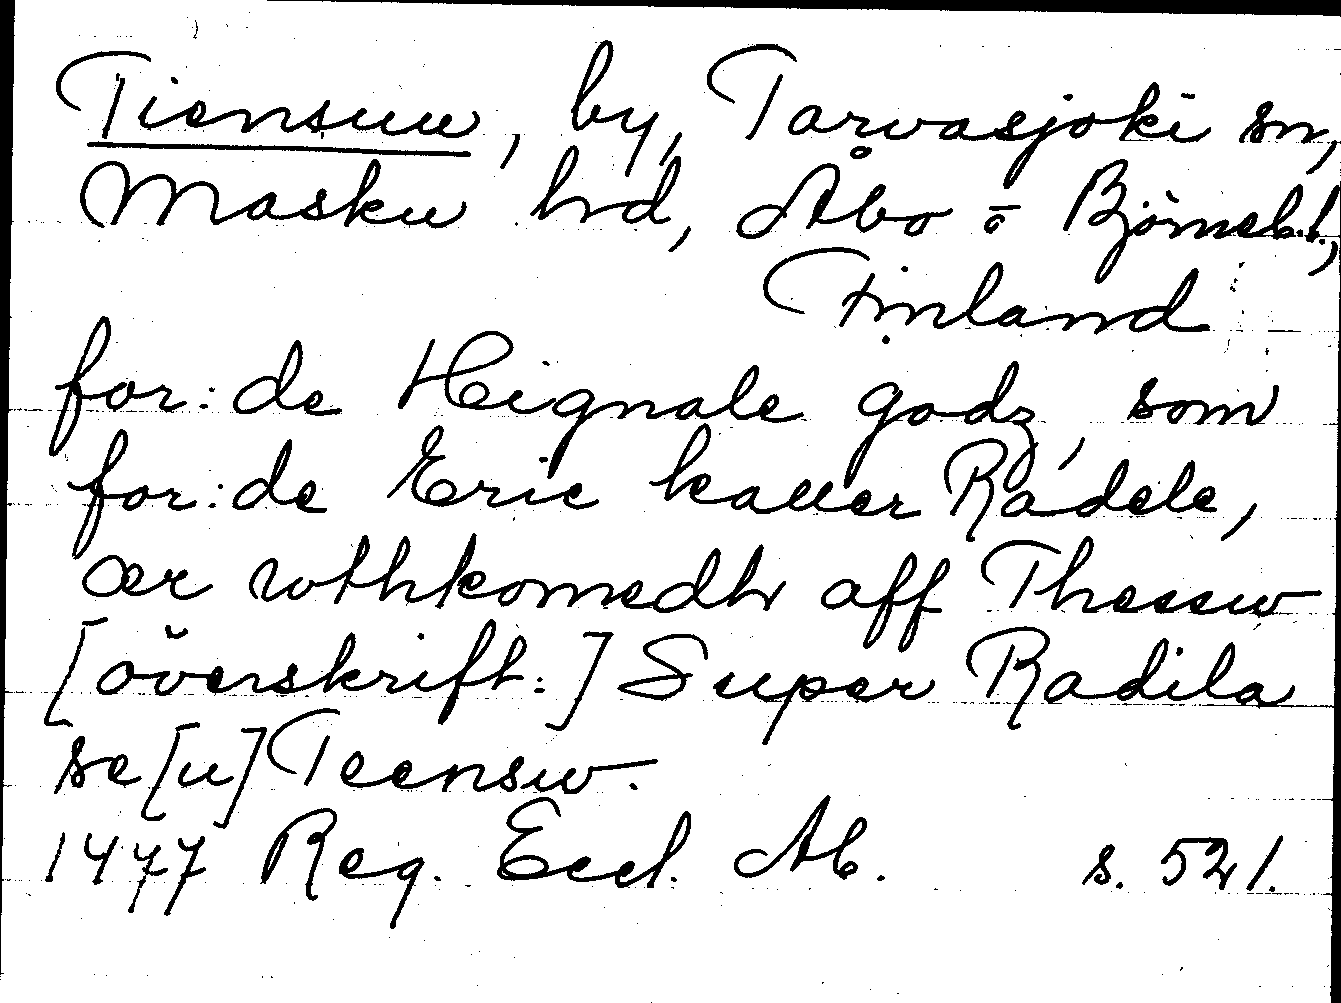 Tiensuu, by, Tarvasjoki sn,
Masku hd, Åbo o Björneb.l,
Finland
for:de Heignale godz, som
for:de Eric kaller Rádele,
ær wthkomedh aff Theesw
[överskrift:] Super Radila
se[u] Teensw.
1477 Reg. Eccl. Ab. s. 521.